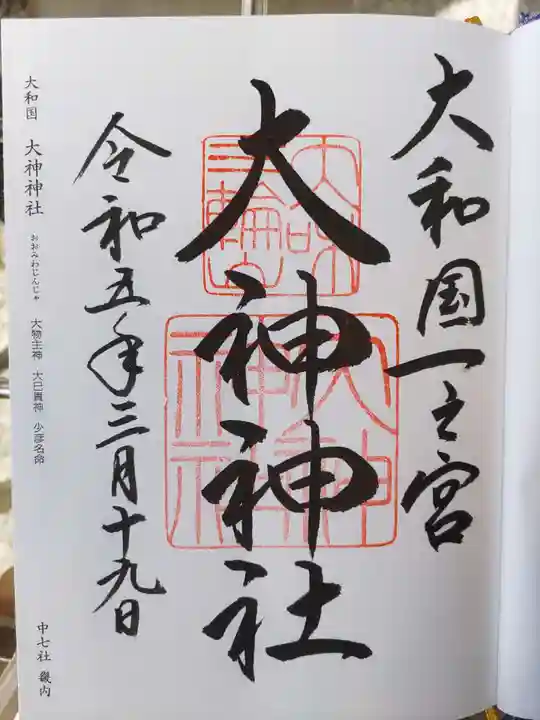 大和国一之宮
大神神社
令和五年三月十九日
大神神社
大和国 大神神社
おおみわじんじゃ
大物主神 大己貴神 少彦名命
中七社 畿内